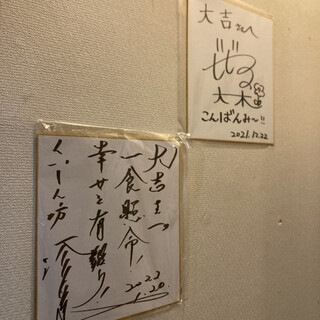 大吉さんへ
大木
こんばんみ〜!!
2021.12.22
大吉さんへ
一食懸命!
幸せと有難う!
くいしん坊
2022
1.20